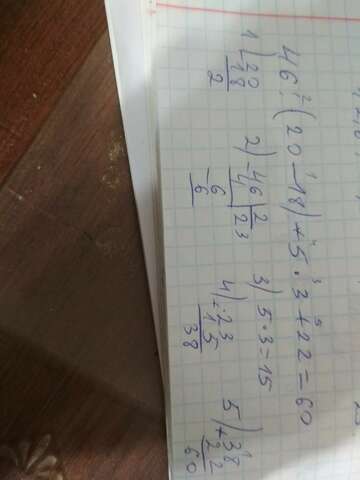 46:(20-18)+5·3+22=60
1) 20
18
2
2) 46 2
4 23
6
6
3) 5·3=15
4) 23
15
38
5) + 38
22
60